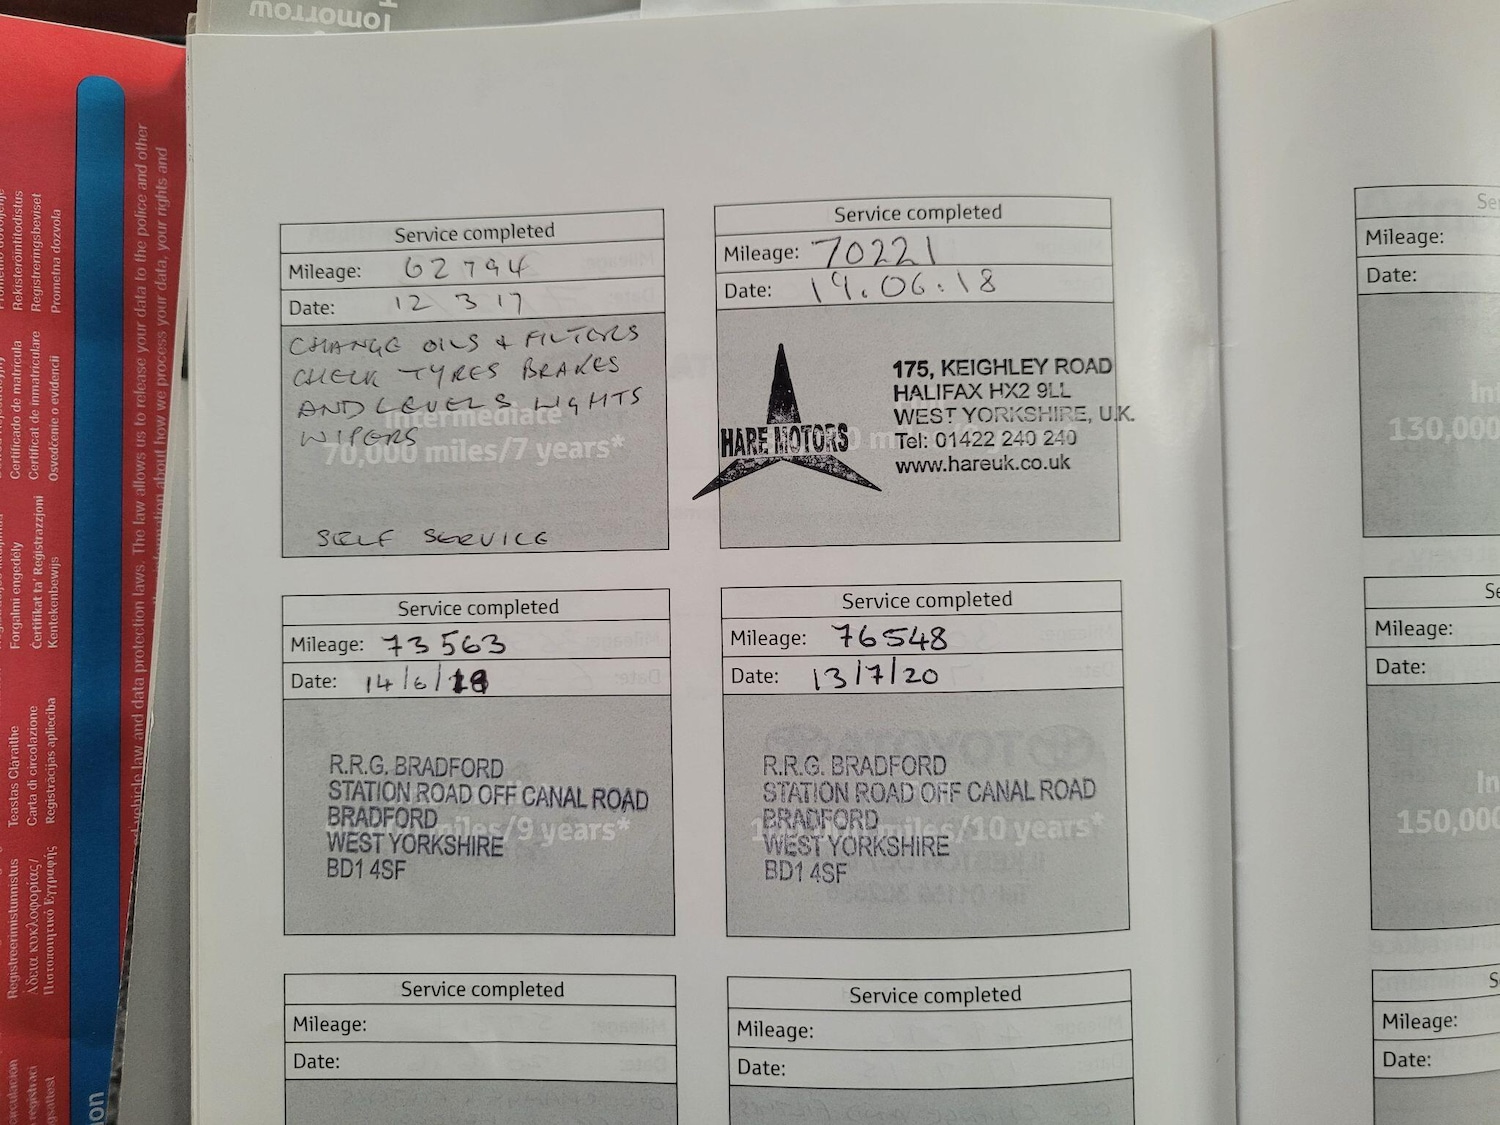 Tomorrow
Prometno dovoljenje
Rekisteröintitodistus
Registreringsbeviset
Prometna dozvola
Certificado de matrícula
Certificat de inmatriculare
Osvedčenie o evidencii
Forgalmi engedély
Ċertifikat ta' Reġistrazzjoni
Kentekenbewijs
Teastas Cláraithe
Carta di circolazione
Reģistrācijas apliecība
Registreerimistunnistus
Άδεια κυκλοφορίας/
Πιστοποιητικό Εγγραφής
vehicle law and data protection laws. The law allows us to release your data to the police and other
information about how we process your data, your rights and
Service completed
Mileage: 62794
Date: 12 3 17
CHANGE OILS & FILTERS
CHECK TYRES BRAKES
AND LEVELS LIGHTS
WIPERS
Intermediate
70,000 miles/7 years*
SELF SERVICE
Service completed
Mileage: 70221
Date: 19.06.18
HARE MOTORS
175, KEIGHLEY ROAD
HALIFAX HX2 9LL
WEST YORKSHIRE, U.K.
Tel: 01422 240 240
www.hareuk.co.uk
Service completed
Mileage: 73563
Date: 14/6/
R.R.G. BRADFORD
STATION ROAD OFF CANAL ROAD
BRADFORD
WEST YORKSHIRE
BD1 4SF
miles/9 years*
Service completed
Mileage: 76548
Date: 13/7/20
R.R.G. BRADFORD
STATION ROAD OFF CANAL ROAD
BRADFORD
WEST YORKSHIRE
BD1 4SF
miles/10 years*
Service completed
Mileage:
Date:
Service completed
Mileage:
Date:
Mileage:
Date:
130,000
Mileage:
Date:
150,000
Mileage:
Date: